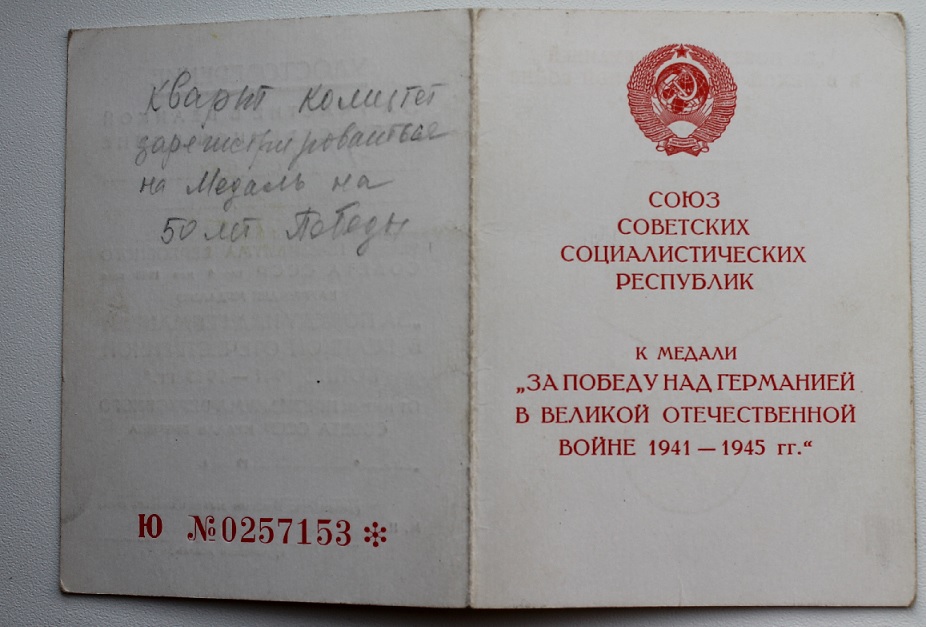 Кварт комитет
зарегистрироваться
на Медаль на
50 лет Победы
Ю №0257153 *
СОЮЗ
СОВЕТСКИХ
СОЦИАЛИСТИЧЕСКИХ
РЕСПУБЛИК
К МЕДАЛИ
„ЗА ПОБЕДУ НАД ГЕРМАНИЕЙ
В ВЕЛИКОЙ ОТЕЧЕСТВЕННОЙ
ВОЙНЕ 1941 — 1945 гг.“